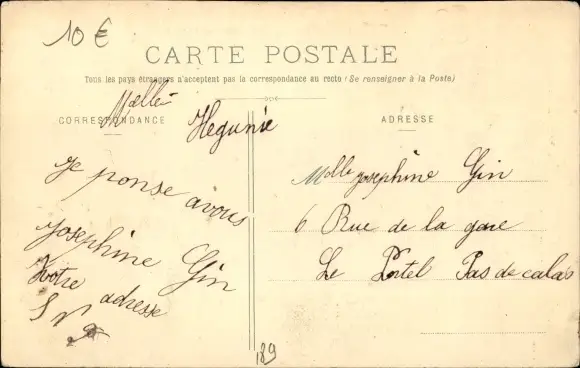 10 €
CARTE POSTALE
Tous les pays étrangers n'acceptent pas la correspondance au recto (Se renseigner à la Poste)
CORRESPONDANCE
Melle
Hegunie
je ponse avous
Josephine Gin
Votre adresse
S V P
ADRESSE
Melle Josephine Gin
6 Rue de la gare
Le Portel Pas de calais
189